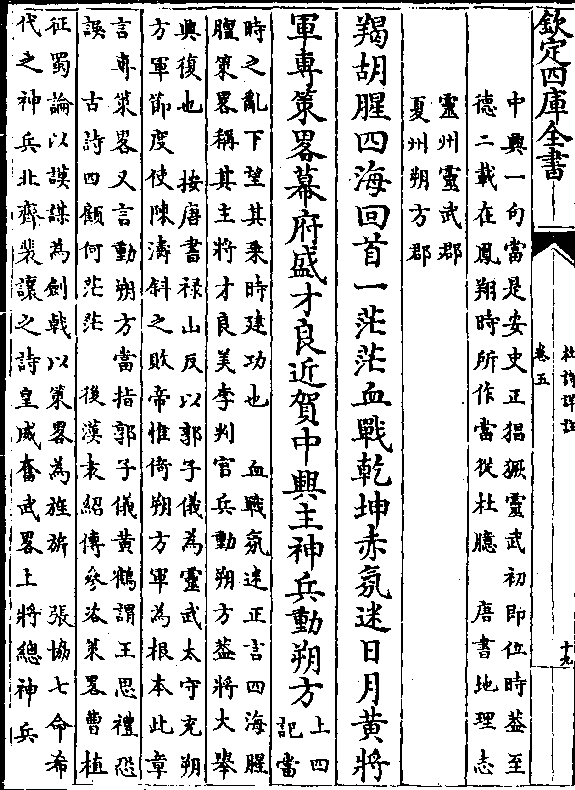 欽定四庫全書
杜詩詳註
卷五
十九
中興一句當是安史正猖獗靈武初即位時葢至
德二載在鳳翔時所作當從杜臆　唐書地理志
靈州靈武郡
夏州朔方郡
羯胡腥四海回首一茫茫血戰乾坤赤氛迷日月黃將
軍專策畧幕府盛才良近賀中興主神兵動朔方
上四
記當
時之亂下望其乘時建功也　血戰氛迷正言四海腥
膻策畧稱其主將才良美李判官兵動朔方葢將大舉
興復也　按唐書祿山反以郭子儀為靈武太守充朔
方軍節度使陳濤斜之敗帝惟倚朔方軍為根本此章
言專策畧又言動朔方當指郭子儀黃鶴謂王思禮恐
誤　古詩四顧何茫茫　後漢袁紹傳參洛策畧曹植
征蜀論以謨謀為劍戟以策畧為旌旂　張協七命希
代之神兵北齊裴讓之詩皇威奮武畧上將總神兵